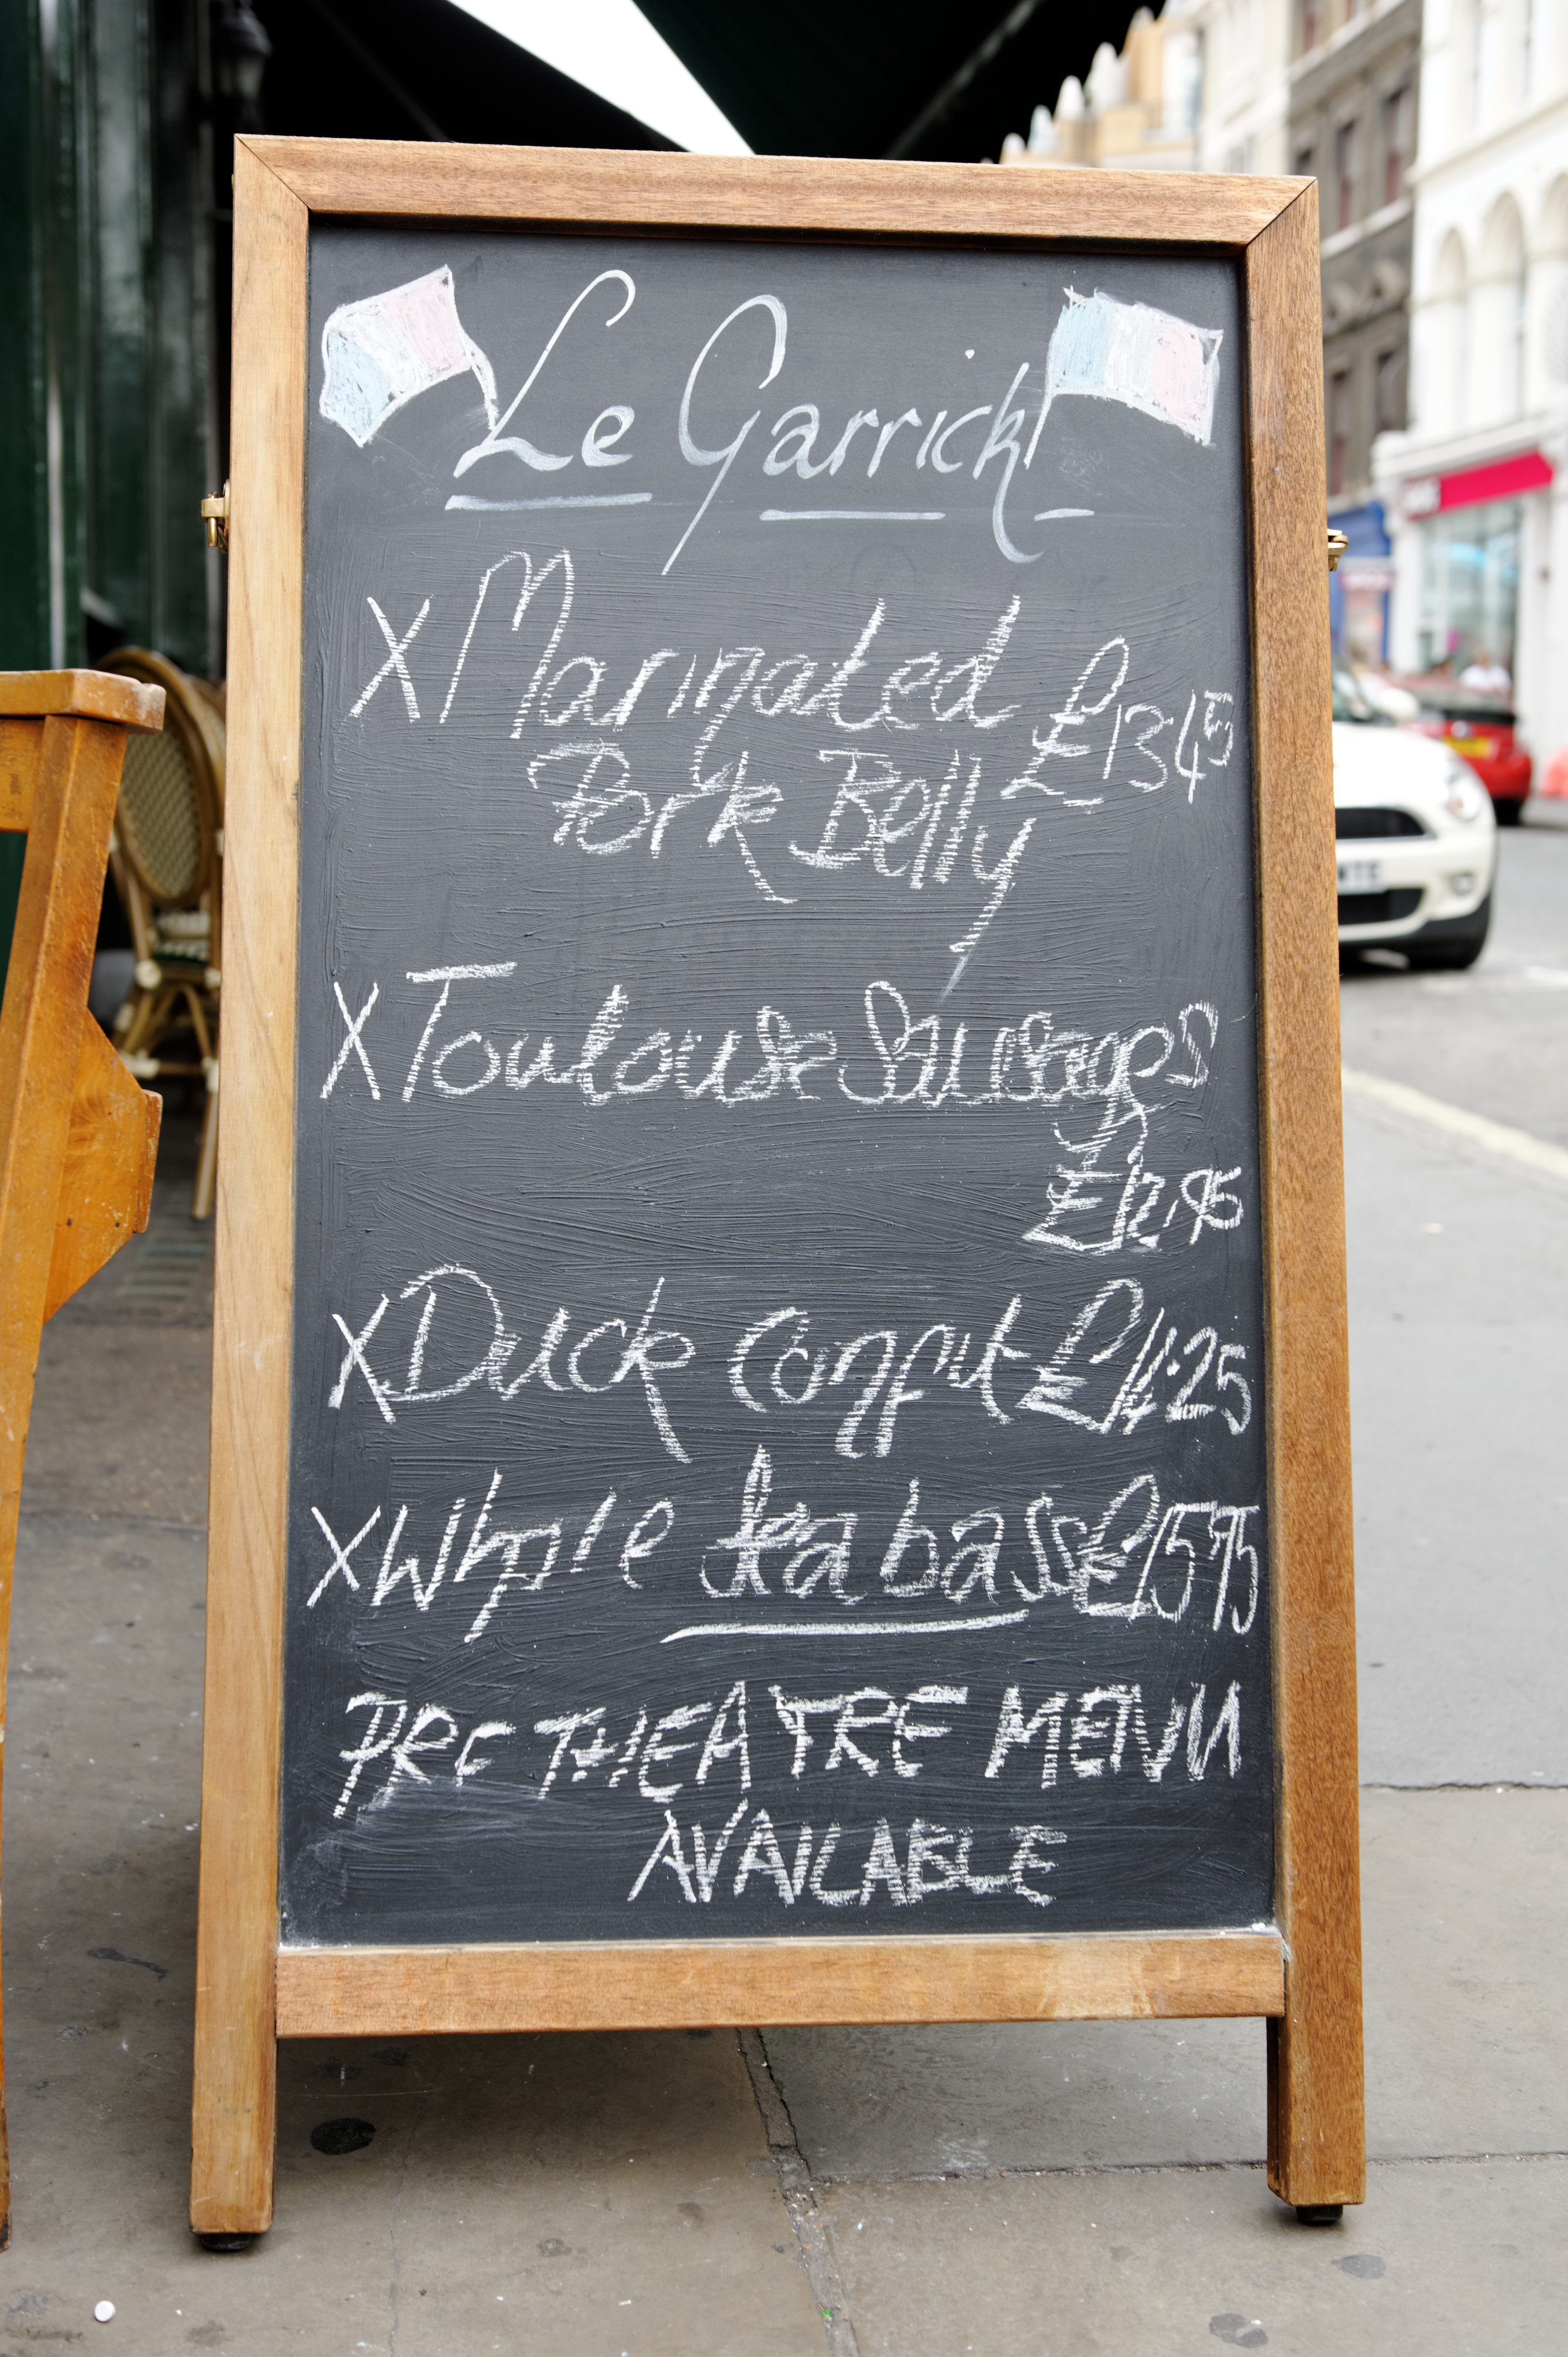 Le Garrick
X Marinated £13.45
Pork Belly
X Toulouse Sausages
£12.95
X Duck Confit £14.25
X Whole sea bass £15.95
PRE THEATRE MENU
AVAILABLE